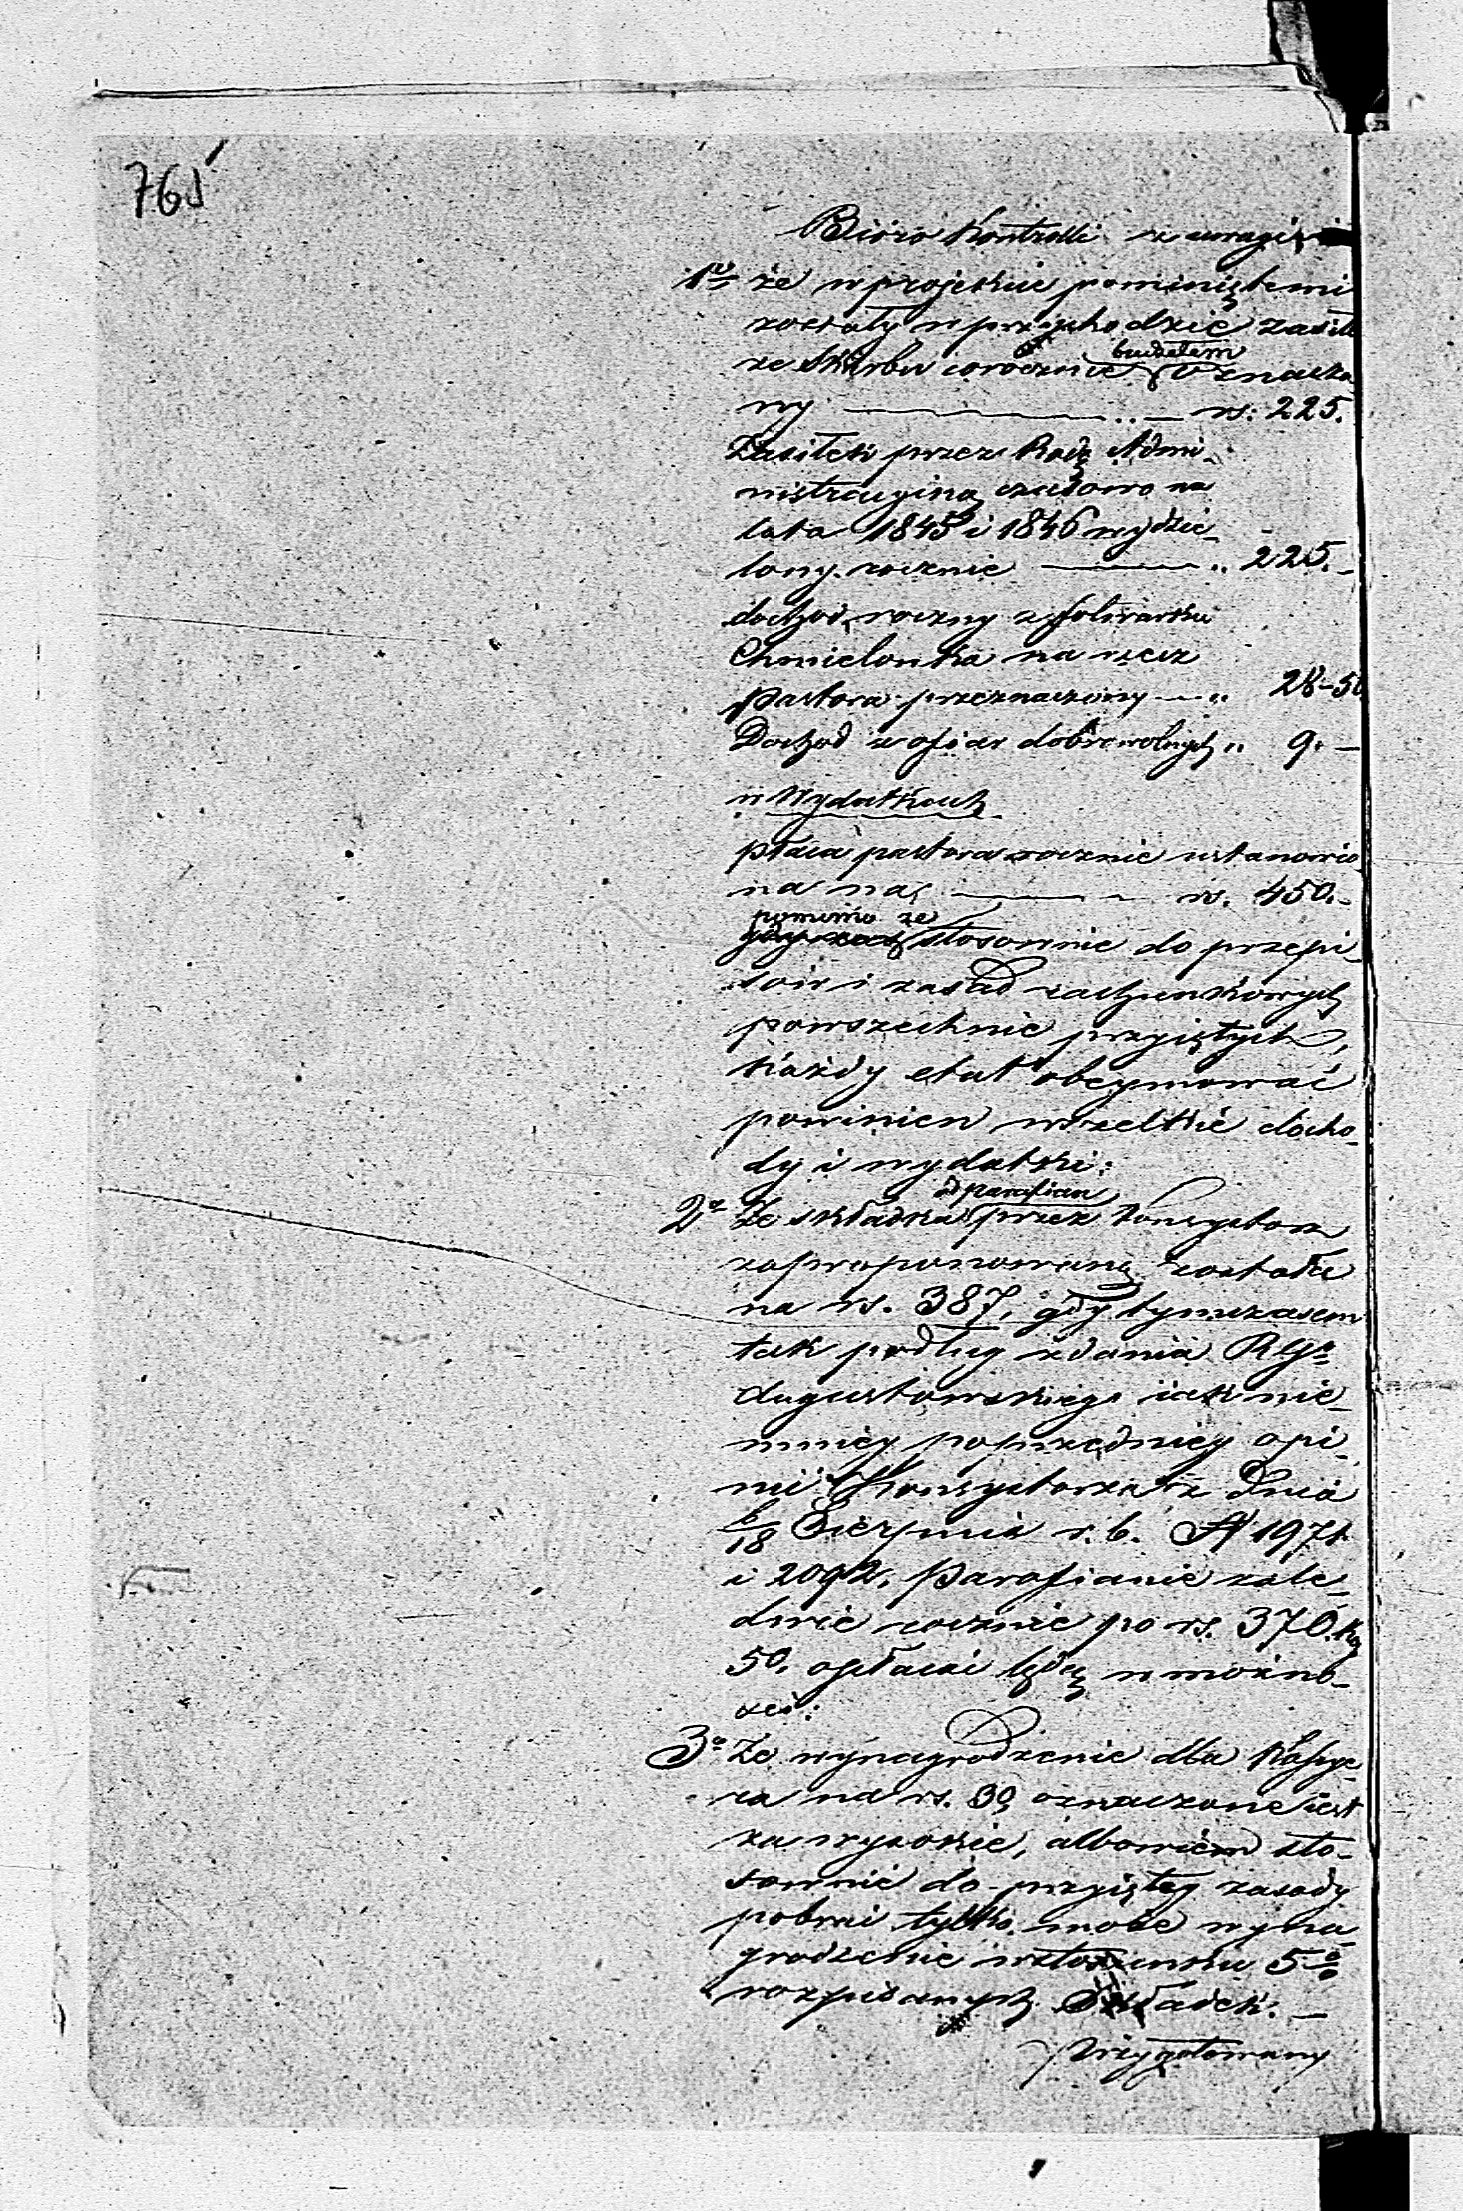 761
Bióro Kontrolli z uwagi
1o że w projekcie pominiętemi
zostały w przychodzie zasił
ze Skarbu corocznie budżetem oznacza
ny — rs: 225.
Zasiłek przez Radę Admi-
nistracyjną czasowo na
lata 1845 i 1846 wydzie-
lony rocznie — „ 225.–
dochod roczny z folwarku
Chmielowka na rzecz
Pastora przeznaczony — „ 28–50
Dochod z ofiar dobrowolnych „ 9.–
w Wydatkach
płaca pastora rocznie ustanowio
na na — rs. 450.–
pomimo że
stosownie do przepi-
sów i zasad rachunkowych
powszechnie przyiętych,
każdy etat obeymować
powinien wszelkie docho-
dy i wydatki:
2o Że składka od parafian przez Konsystorz
zaproponowaną została
na rs. 387, gdy tymczasem
tak podług zdania RGo
Augustowskiego iak nie-
mniey poprzedniey opi-
nii Konsystorza z dnia
6/18 Sierpnia r. b. N 1971
i 2092, Parafianie zale-
dwie rocznie po rs. 370. kp
50. opłacać będą w możno-
ści:
3o Że wynagrodzenie dla Kassye-
ra na rs. 30 oznaczone iest
za wysokie, albowiem sto-
sownie do przyiętey zasady
pobrać tylko może wyna-
grodzenie w stosunku 5%
rozpisanych Składek. –
Przygotowany